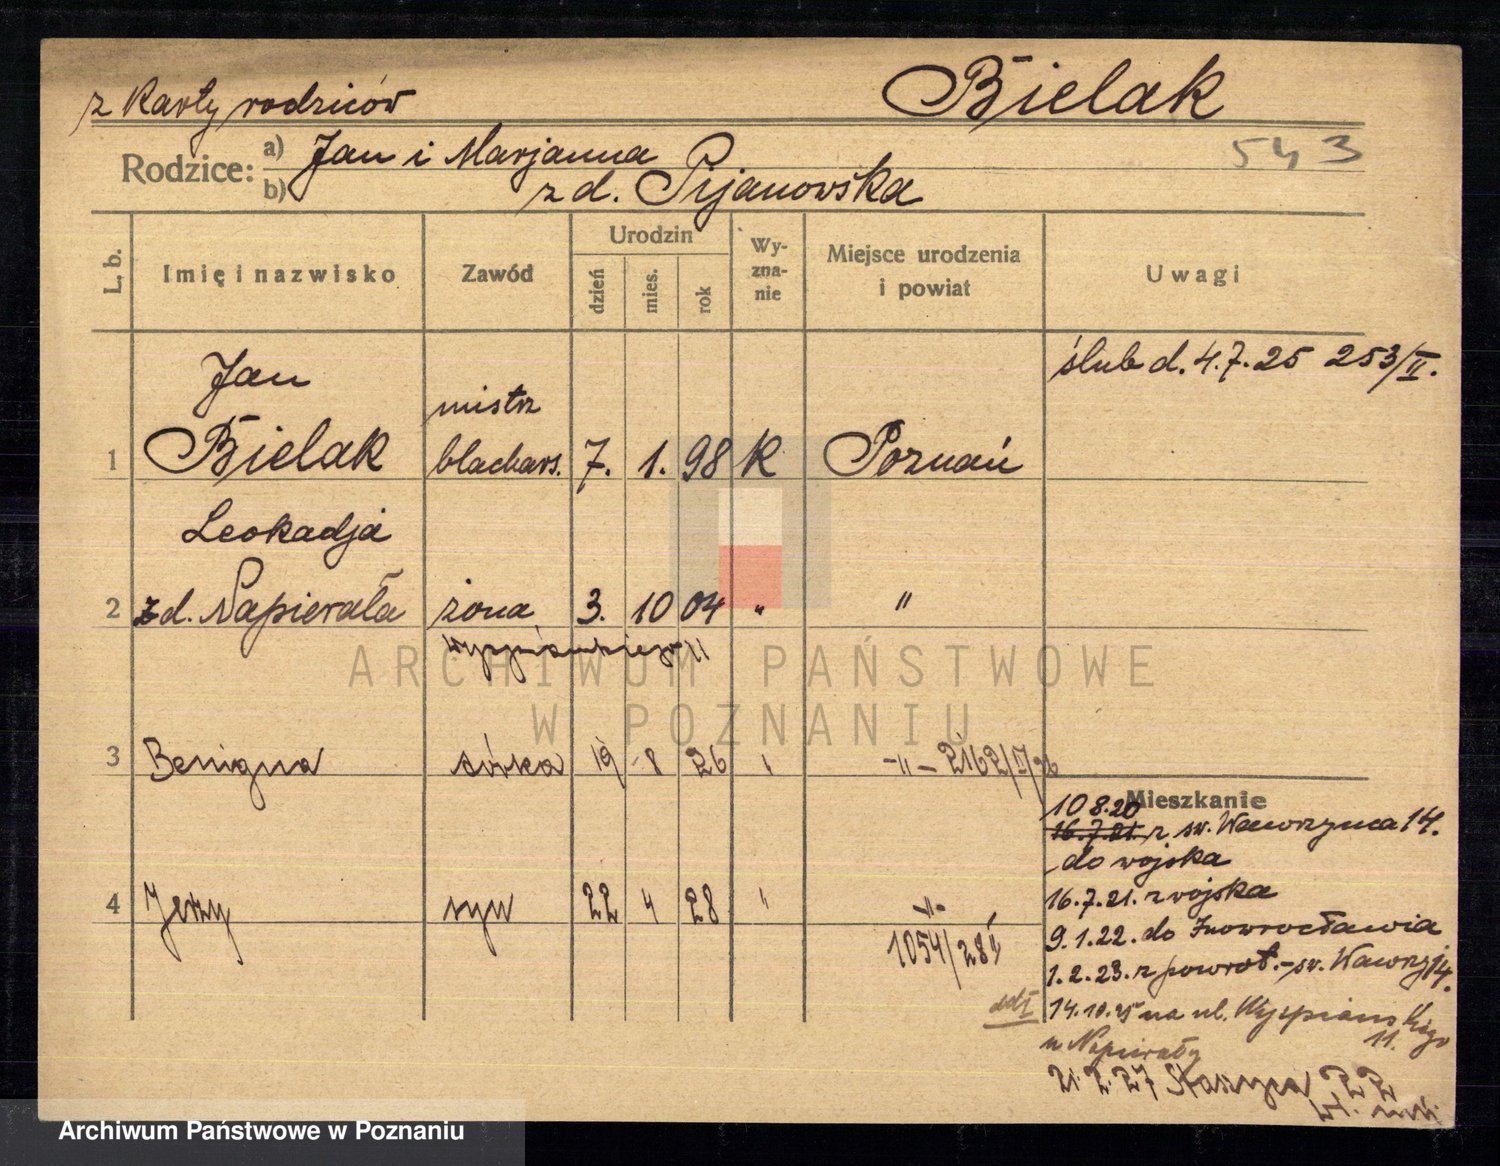 z karty rodziców
Bielak
543
Rodzice: a) Jan i Marjanna
b) z d. Pijanowska
L, b.
Imię i nazwisko
Zawód
Urodzin
dzień
mies.
rok
Wy-
zna-
nie
Miejsce urodzenia
i powiat
Uwagi
ślub d. 4.7.25 253/II.
Jan
mistrz
1 Bielak blachars. 7. 1. 98 K Poznań
Leokadja
2 z d. Napierała żona 3. 10 04 " "
Wyspiańskiego 11
3 Benigna córka 19 8 26 " -"- 2162/V/26
4 Jerzy syn 22 4 28 " -"-
1054/28
Mieszkanie
10 8.20
16.7.21. z św. Wawrzynca 14.
do wojska
16.7.21. z wojska
9.1.22. do Inowrocławia
1.2.23. z powrot. - św. Wawrzy 14.
14.10.25 na ul. Wyspiańskiego
11.
u Napierały
21.2.27 22
ARCHIWUM PAŃSTWOWE
W POZNANIU
Archiwum Państwowe w Poznaniu